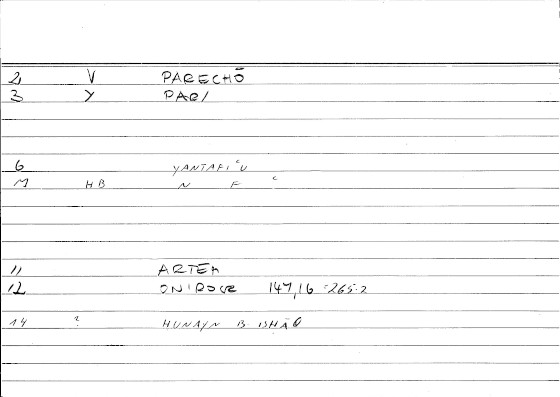 2 V PARECHŌ
3 Y PARI
6 YANTAFIʿU
M HB N F ʿ
11 ARTEM
12 ONIROCR 147,16 = 265.2
14 ? HUNAYN B ISHĀQ